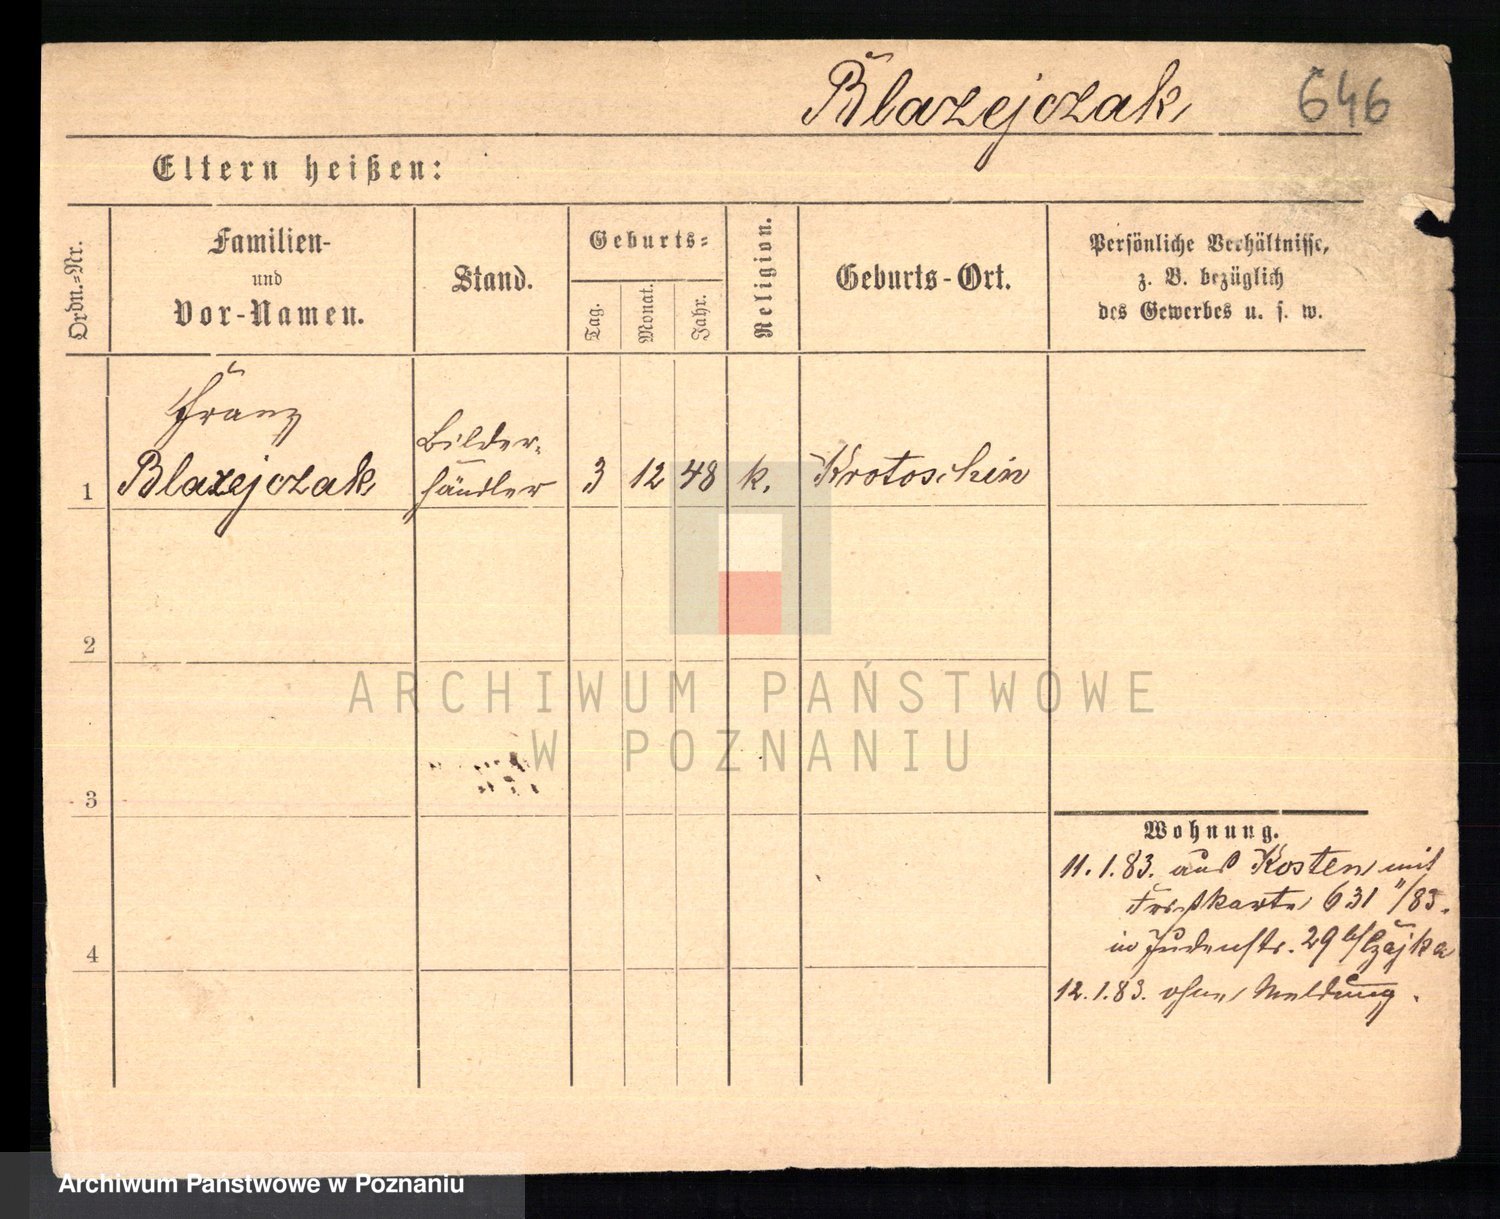 Blazejczak
646
Eltern heißen:
Ordn.-Nr.
Familien-
und
Vor-Namen.
Stand.
Geburts-
Tag.
Monat.
Jahr.
Religion.
Geburts-Ort.
Persönliche Verhältnisse,
z. B. bezüglich
des Gewerbes u. s. w.
1
Franz
Blazejczak
Bilder-
händler
3
12
48
k.
Krotoschin
2
3
4
Wohnung.
11.1.83. aus Kosten mit
karte 631 11/83.
in Judenstr. 29 b/Czajka
12.1.83. ohne Meldung.
ARCHIWUM PAŃSTWOWE
W POZNANIU
Archiwum Państwowe w Poznaniu